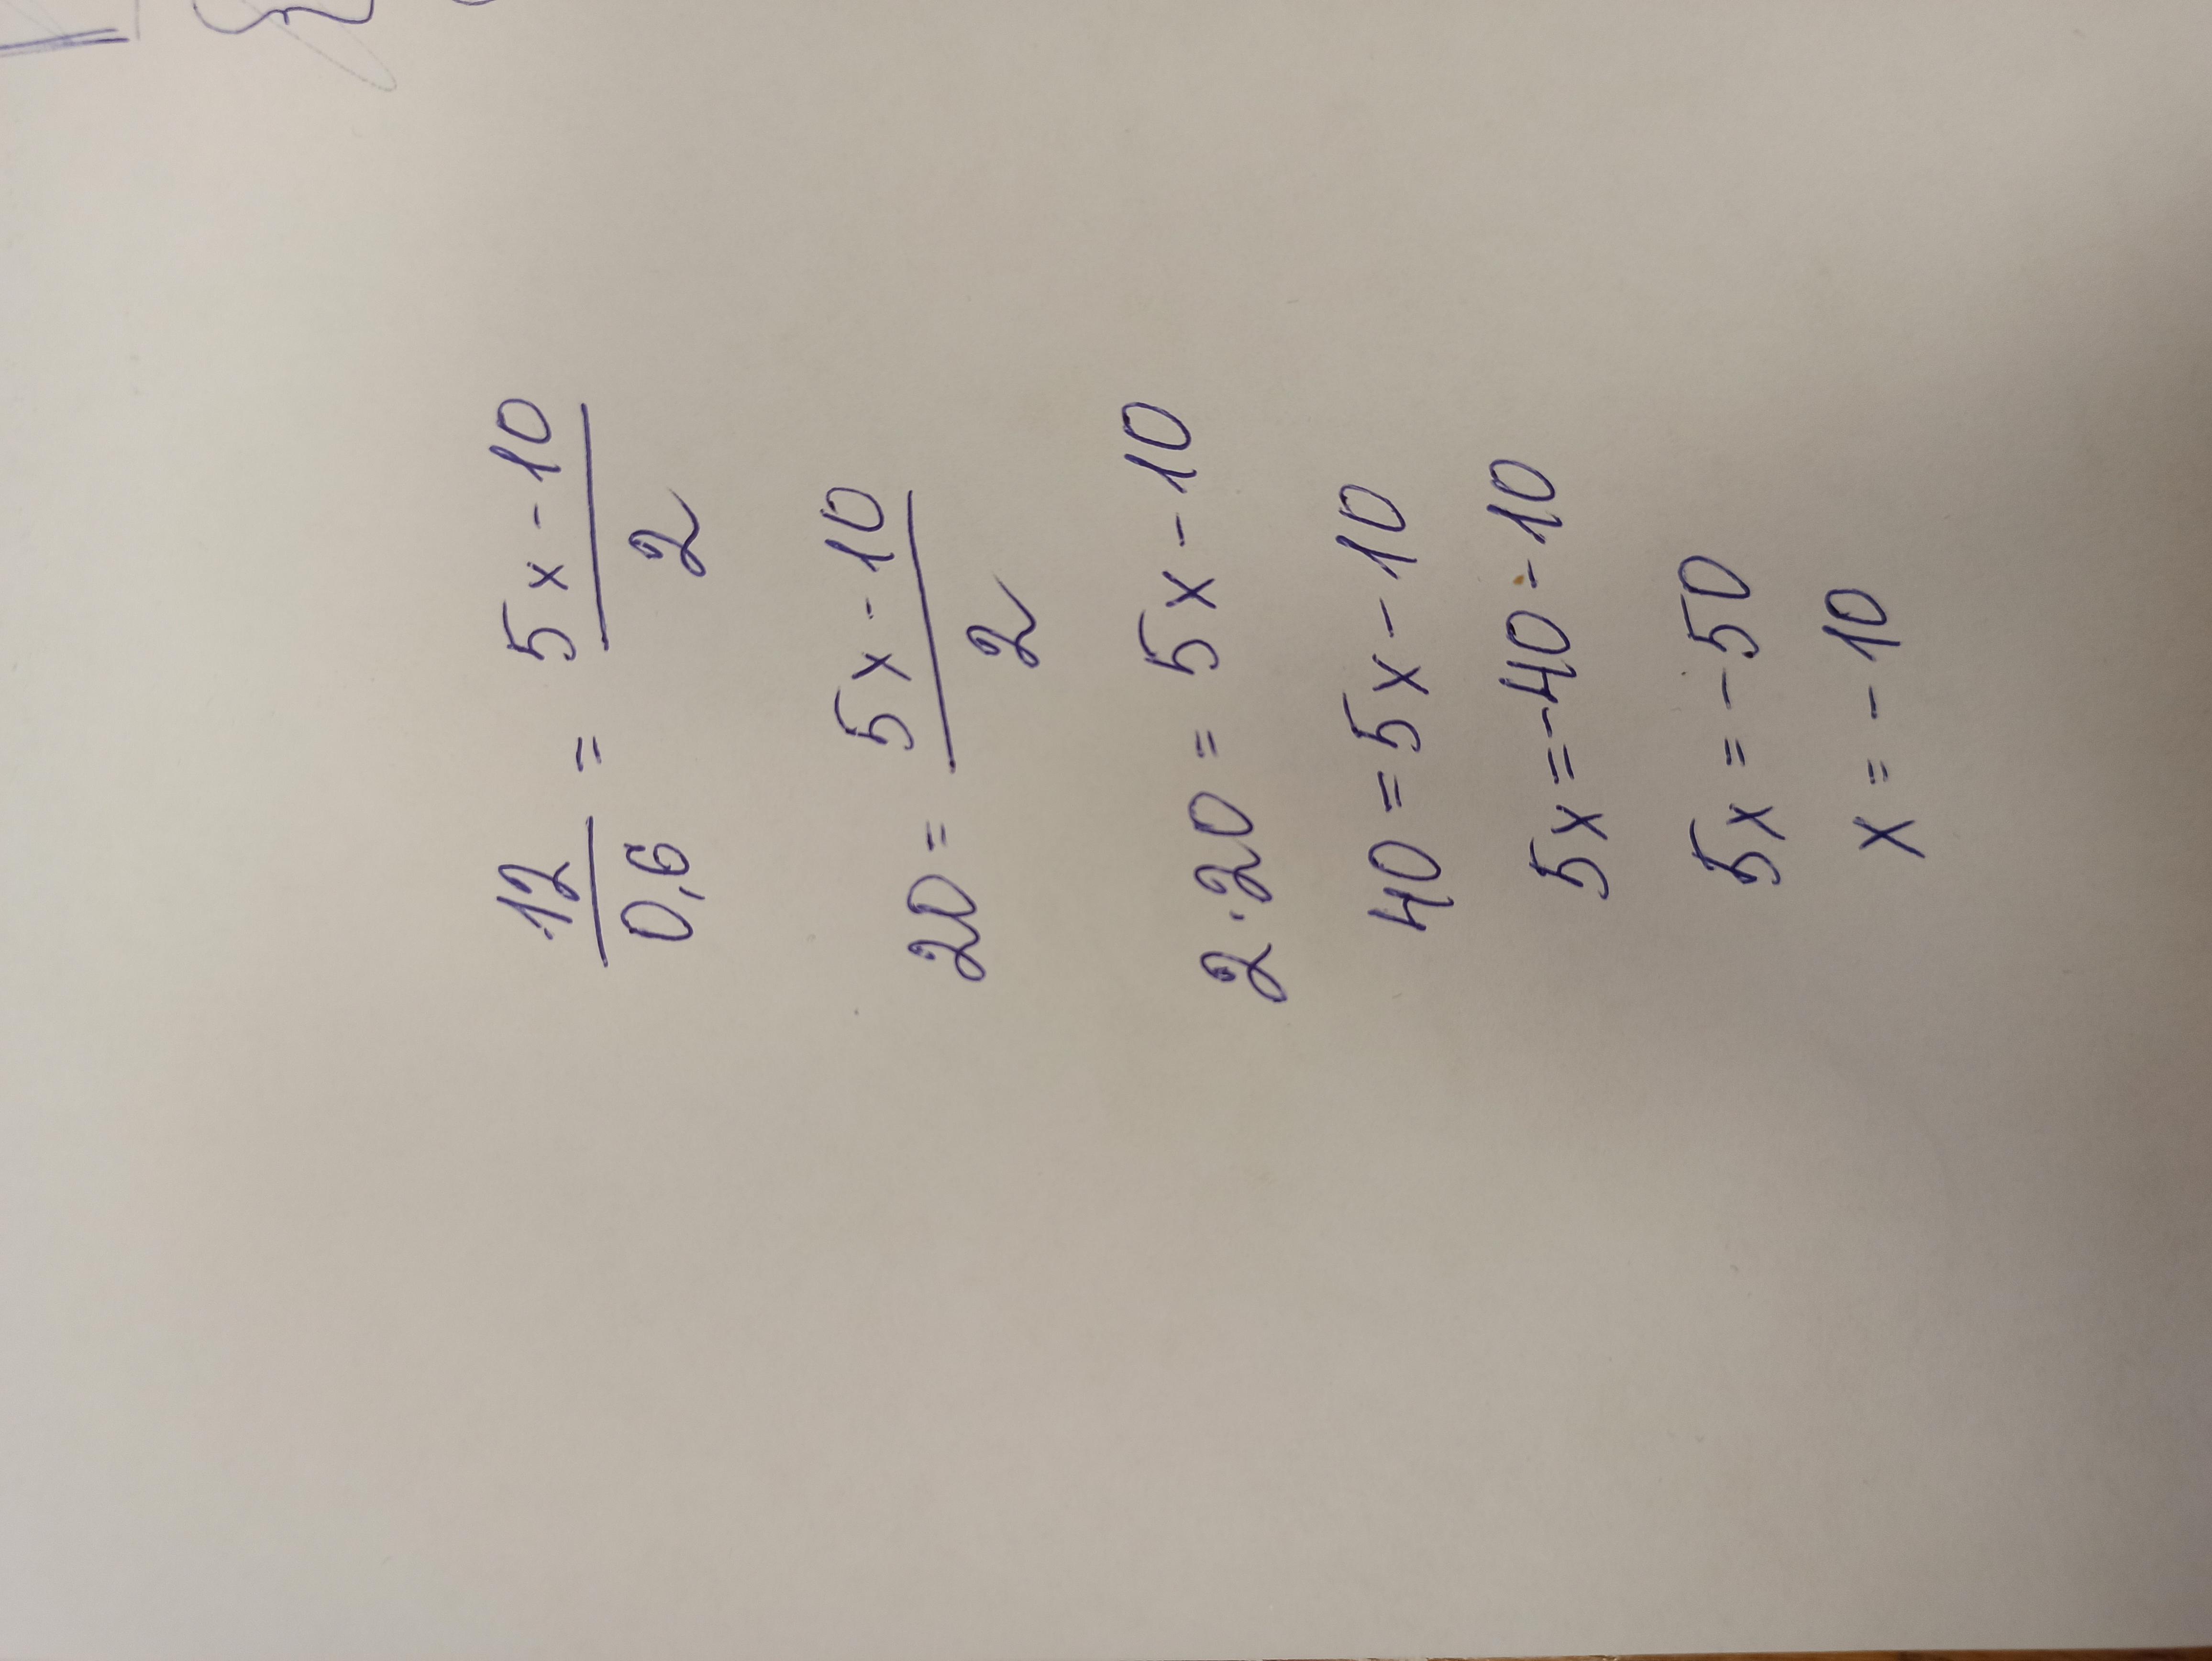 12/0,6 = (5x - 10)/2
20 = (5x - 10)/2
2·20 = 5x - 10
40 = 5x - 10
5x = -40 - 10
5x = -50
x = -10